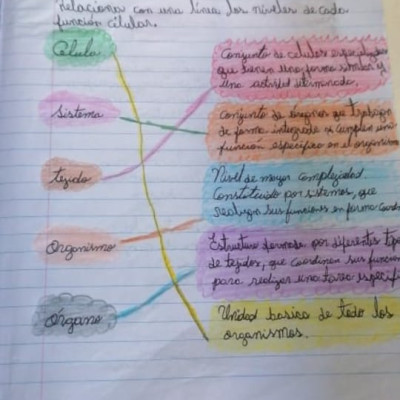 relaciona con una linea los niveles de cada
función célular.
Célula
Sistema
tejido
Organismo
Órgano
Conjunto de celulas especializadas
que tienen una forma similar y
una actividad determinada.
Conjunto de órganos que trabajan
de forma integrada y cumplen una
función especifica en el organismo
Nivel de mayor complejidad.
Constituido por sistemas, que
realizan sus funciones en forma
Estructura formada por diferentes tipo
de tejidos, que coordinan sus funcion
para realizar una tarea especifi
Unidad basica de todo los
organismos.